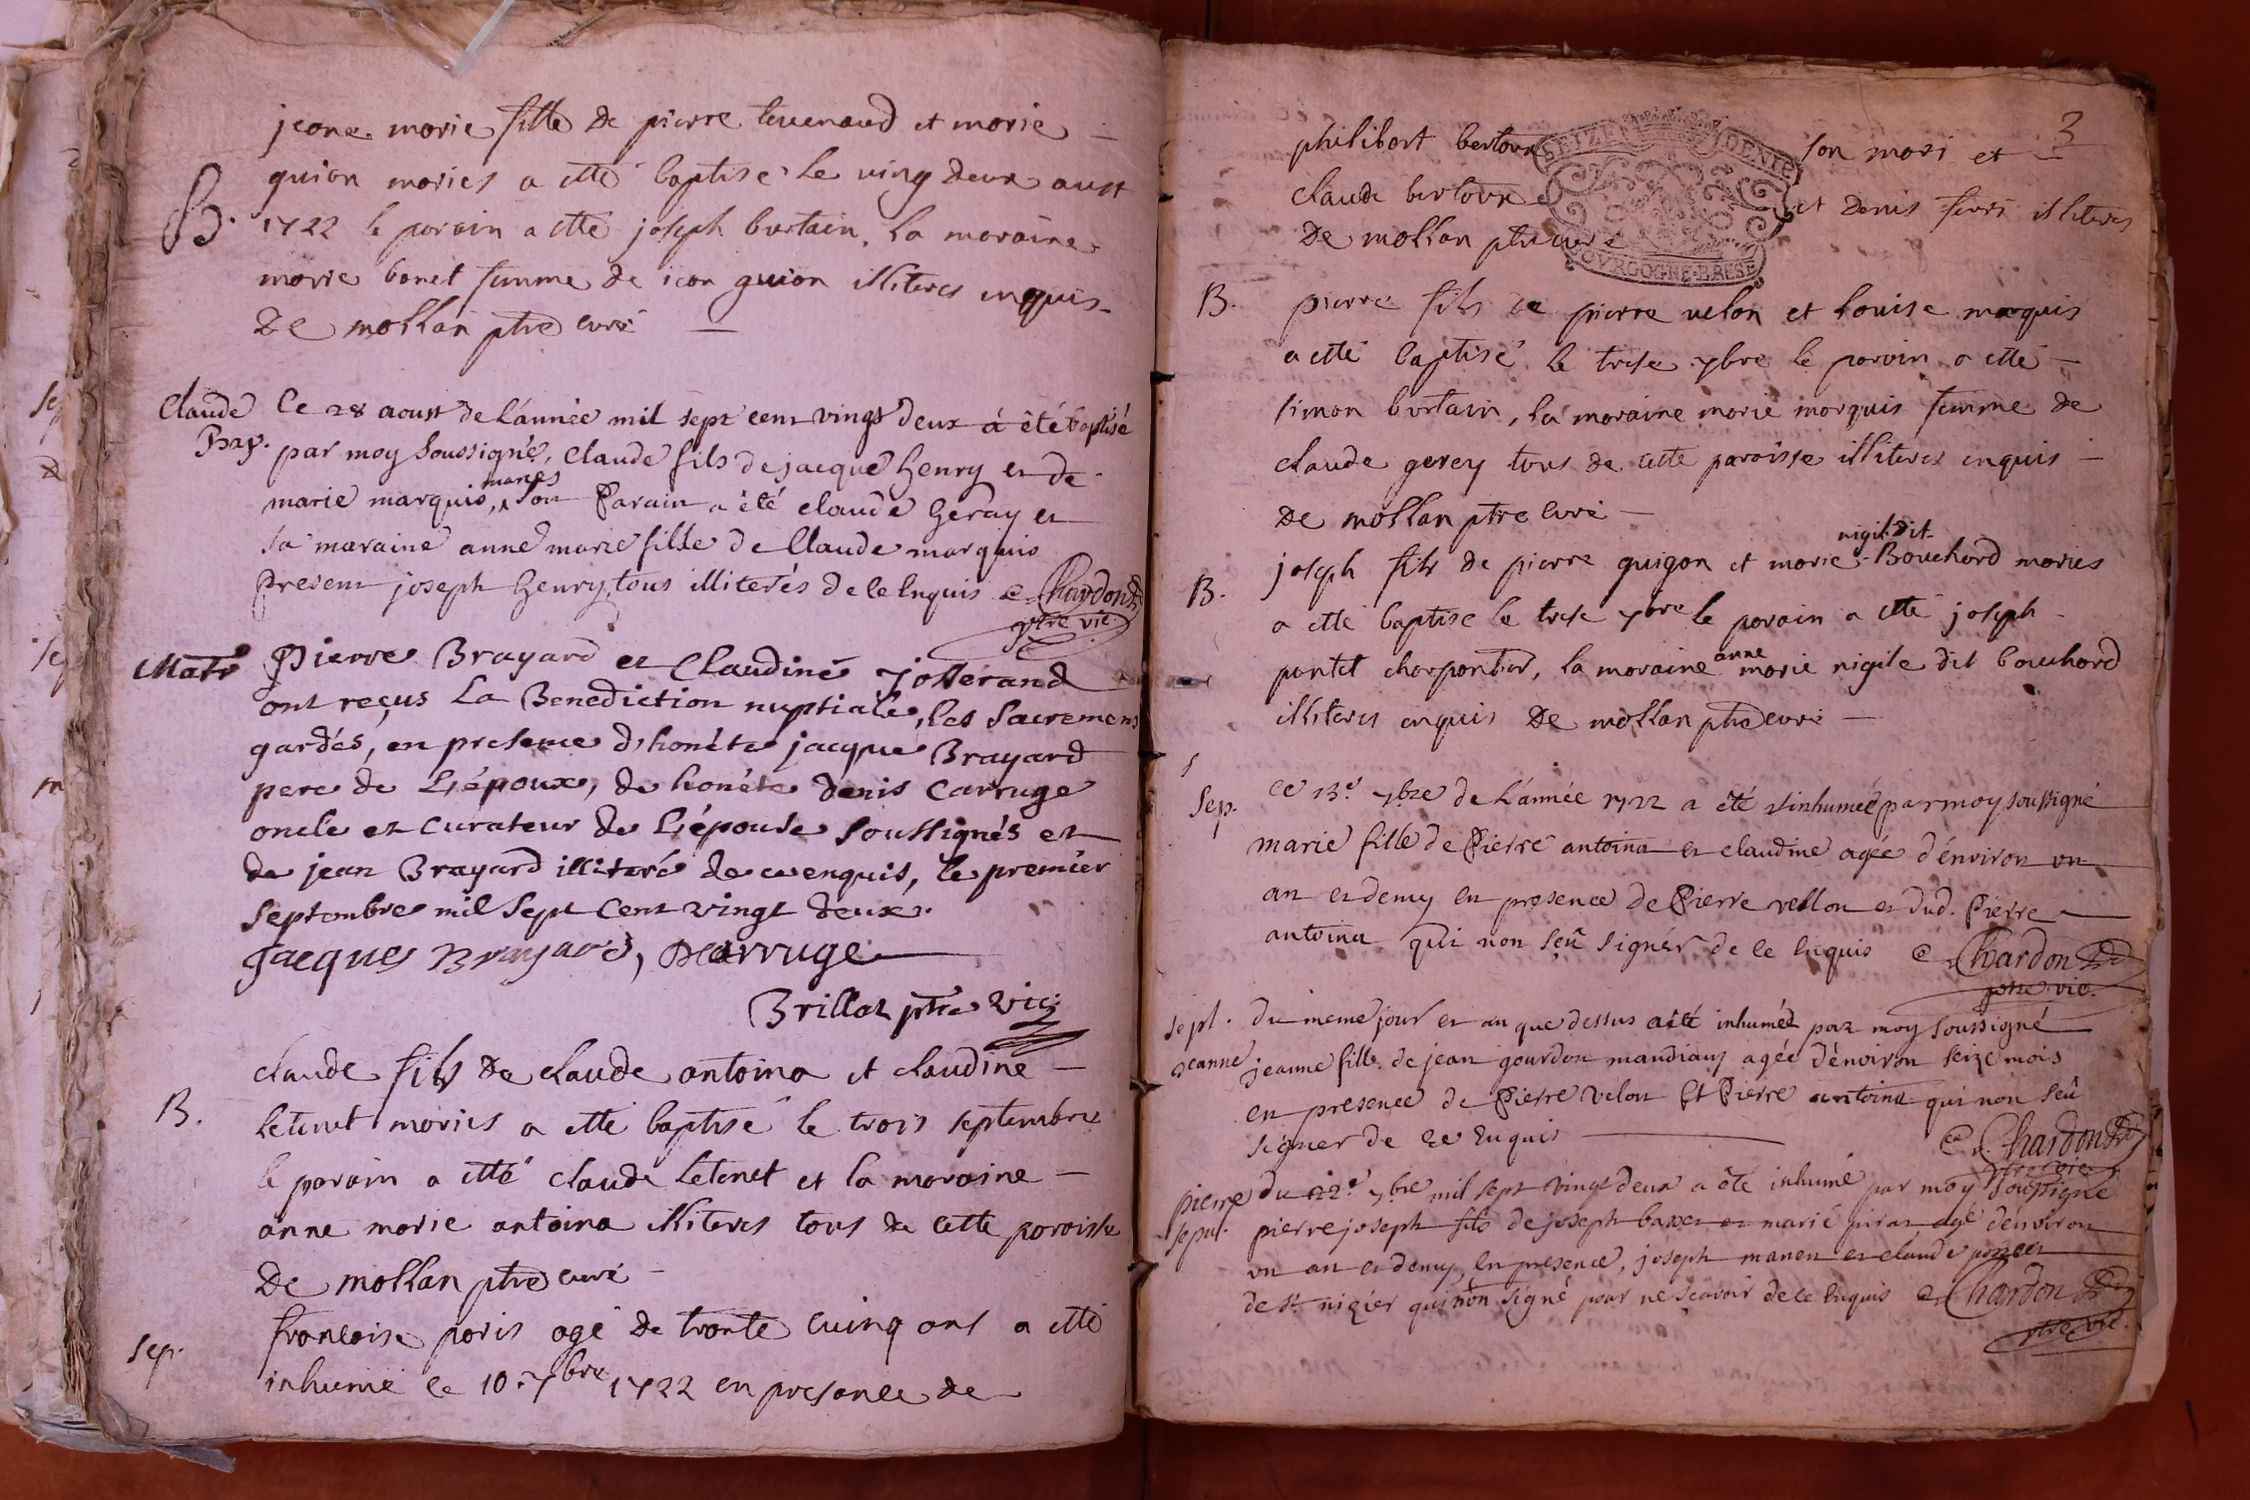 jeane marie fille de pierre tevenaud et marie
B. guion maries a etté baptisé le ving deux aust
1722 le parain a etté joseph burtain, la maraine
marie bonet femme de jean guion illiteres enquis
De mollan ptre curé
Claude Ce 28 aoust de l'année mil sept cent vingt deux à été baptisé
Bap. par moy soussigné, claude fils de jacque henry et de
marie marquis, mariés son parain a été claude geray et
sa maraine anne marie fille de Claude marquis
present joseph henry, tous illiterés de ce enquis Chardon
ptre vic.
Mar. Pierre Brayard et Claudine jossérand
ont reçus la Benediction nuptiale, les sacremens
gardés, en presence d'honête jacque Brayard
pere de l'époux, de honête denis Carruge
oncle et curateur de l'épouse soussignés et
de jean Brayard illitéré de ce enquis, le premier
septembre mil sept cent vingt deux.
Jacques Brayard, DCarruge
Brillat ptre vic.
claude fils de claude antoina et claudine
B. letenet maries a etté baptisé le trois septembre
le parain a etté claude letenet et la maraine
anne marie antoina illiteres tous de cette paroisse
De mollan ptre curé
francoise paris agé de trante cuinq ans a etté
sep. inhumé le 10 7bre 1722 en presance de
3
philibert bertoux son mari et
claude bertoux et denis feuri illiteres
De mollan ptre curé
SEIZE DENIE
BOURGOGNE BRESE
B. pierre fils de pierre velon et louise marquis
a etté baptisé le trese 7bre le parain a etté
simon burtain, la maraine marie marquis femme de
claude gerey tous de cette paroisse illiteres enquis
De mollan ptre curé
nigil dit
joseph fils de pierre guigon et marie Bouchard maries
B. a etté baptisé le trese 7bre le parain a etté joseph
pantet charpantier, la maraine anne marie nigile dit bouchard
illiteres enquis De mollan ptre curé
Sep. ce 13e 7bre de l'année 1722 a été inhumée par moy soussigné
marie fille de Pierre antoina et claudine agée d'environ un
an et demy en presence de Pierre vellon et dud. Pierre
antoina qui non seu signér de ce enquis Chardon
ptre vic.
sepl. du meme jour et an que dessus a été inhumée par moy soussigné
jeanne jeanne fille de jean gourdon mandiant agée d'environ seize mois
en presence de Pierre velon Et Pierre antoina qui non seu
signer de ce enquis Chardon
ptre vic.
pierre du 22e 7bre mil sept vingt deux a été inhumé par moy soussigné
sepul. pierre joseph fils de joseph basset et marie agé d'environ
un an et demy, en presence, joseph manen et claude
de st. nizier qui non signé pour ne scavoir de ce enquis Chardon
ptre vic.